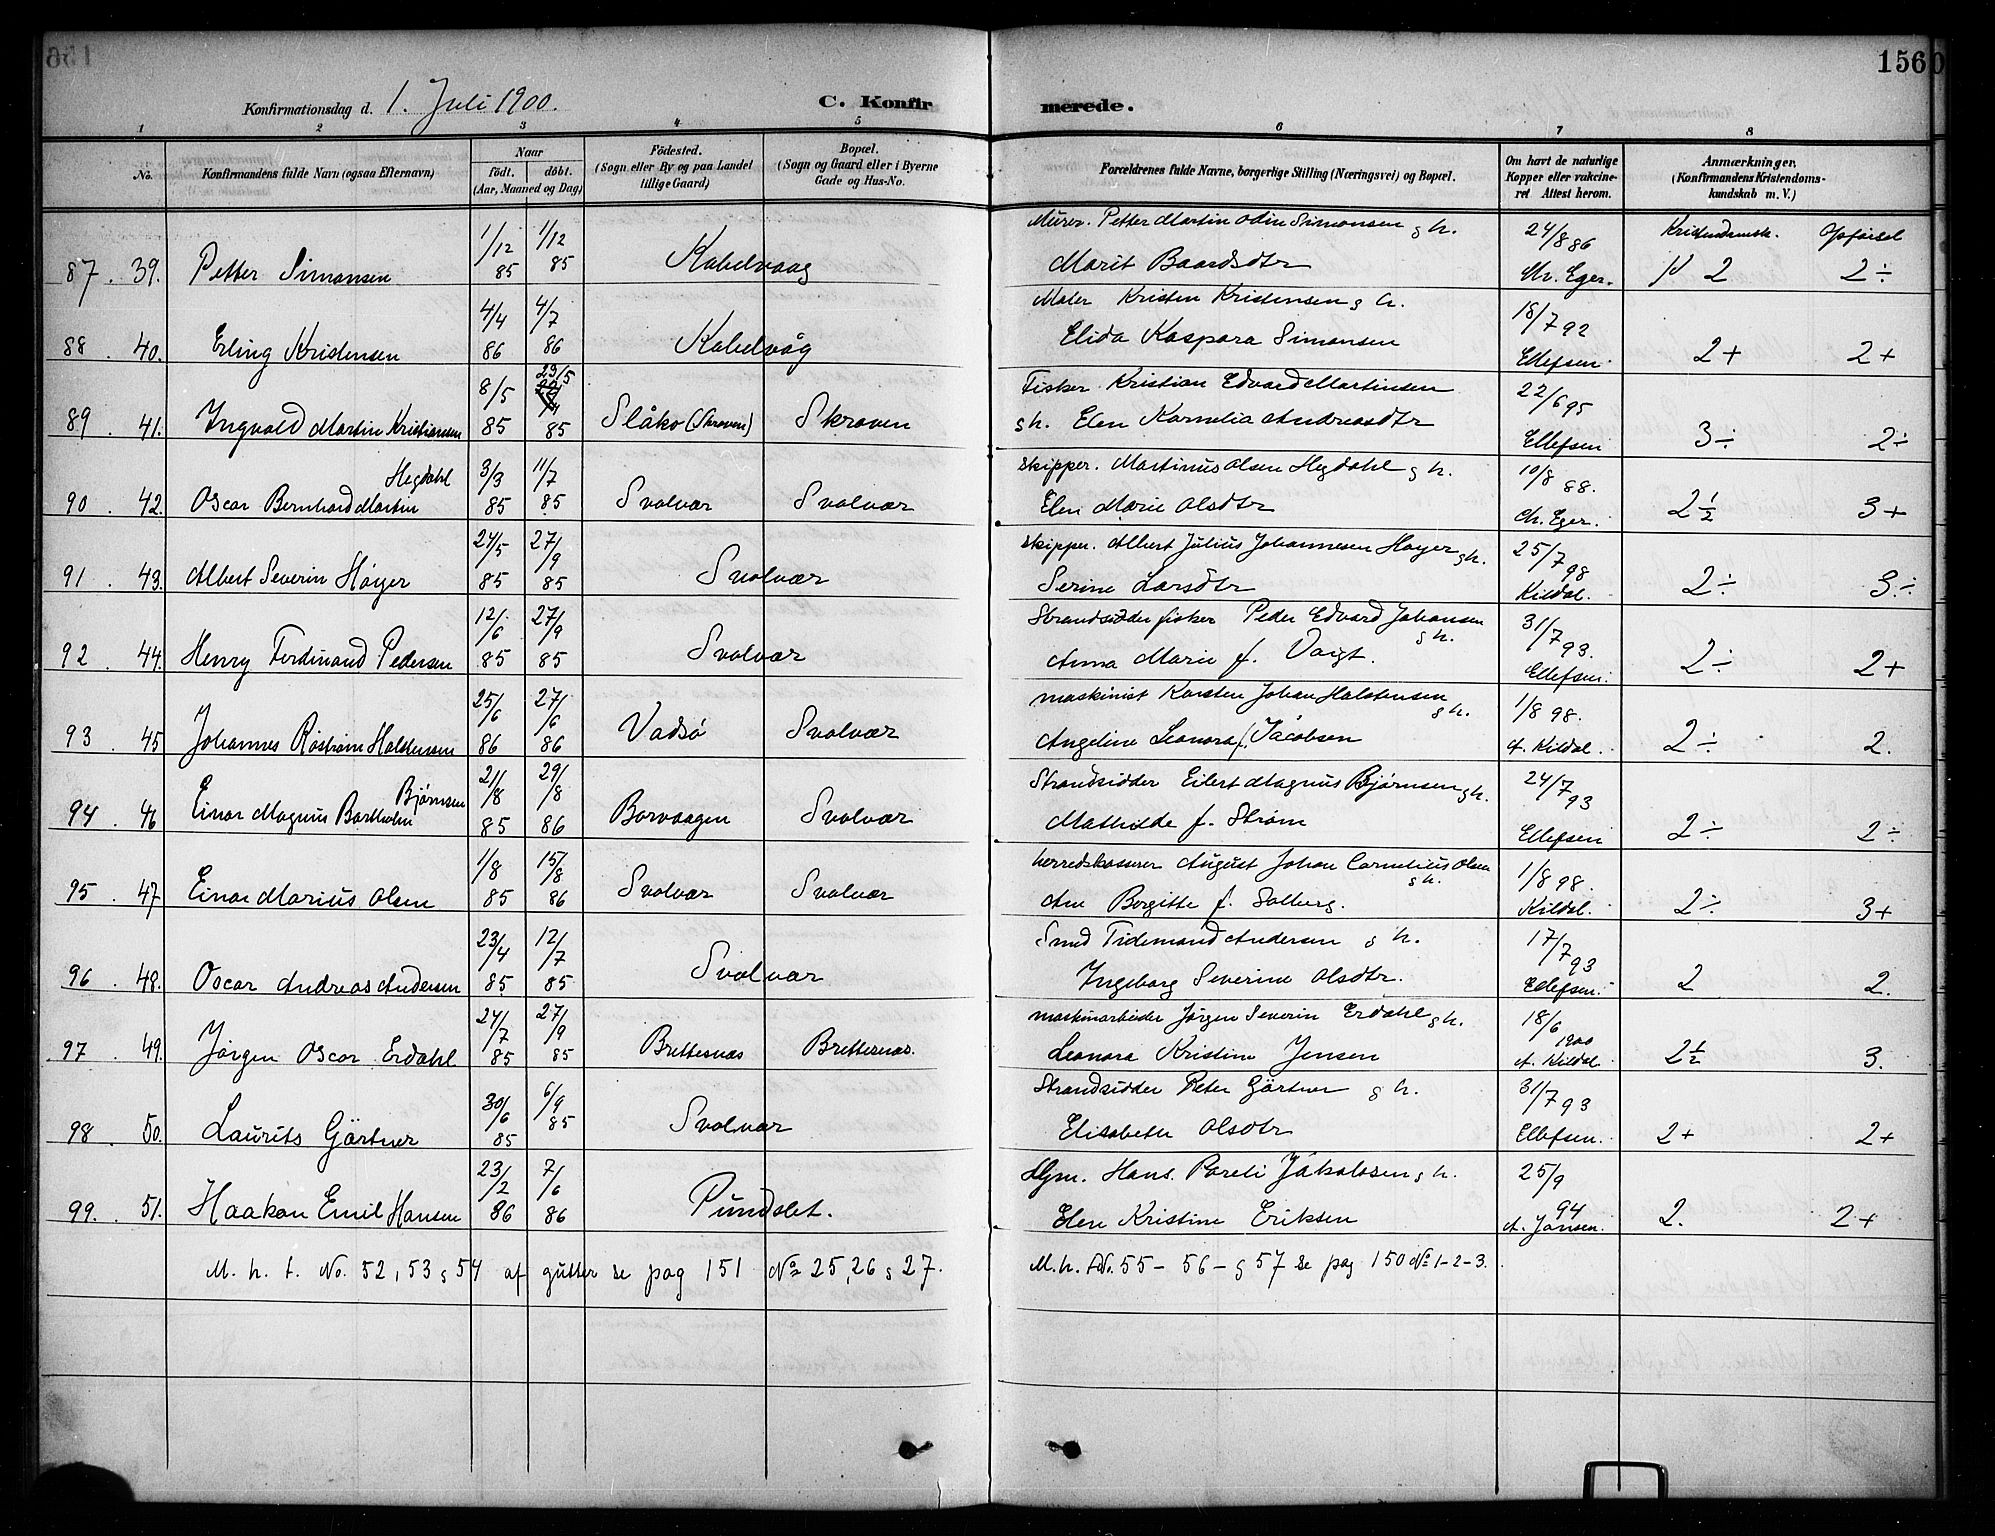 156
Konfirmationsdag d. 1. Juli 1900. C. Konfirmerede.
1 2 3 4 5 6 7 8
No. Konfirmandens fulde Navn (ogsaa Efternavn) Naar födt. döbt. (Aar, Maaned og Dag) Födested. (Sogn eller By og paa Landet tillige Gaard) Bopæl. (Sogn og Gaard eller i Byerne Gade og Hus-No. Forældrenes fulde Navne, borgerlige Stilling (Næringsvei) og Bopæl. Om havt de naturlige Kopper eller vakcineret Attest herom. Anmærkninger, (Konfirmandens Kristendomskundskab m. V.)
Kristendomsk. Opförsel
87. 39. Petter Simonsen 1/12 85 1/12 85 Kabelvaag Murer. Petter Martin Odin Simonsen g h. Marit Baardsdtr 24/8 86 Chr. Eger. 2 2÷
88. 40. Erling Kristensen 4/4 86 4/7 86 Kabelvåg Maler Kristen Kristensen g h. Elida Kaspara Simonsen 18/7 92 Ellefsen. 2+ 2+
89. 41. Ingvald Martin Kristiansen 8/5 85 29/5 85 Slåko (Skroven) Skroven Fisker Kristian Edvard Martinsen g h. Elen Kornelia Andreasdtr 22/6 95 Ellefsen 3÷ 2÷
90. 42. Oscar Bernhard Martin Hegdahl 3/3 85 11/7 85 Svolvær Svolvær Skipper. Martinus Olsen Hegdahl g h. Elen Marie Olsdtr 10/8 88. Ch. Eger. 2½ 3+
91 43. Albert Severin Høyer 24/5 85 27/9 85 Svolvær Skipper. Albert Julius Johannesen Høyer g h. Serine Larsdtr 25/7 98 Kildal. 2÷ 3÷
92 44. Henry Ferdinand Pedersen 12/6 85 27/9 85 Svolvær Strandsidder fisker Peder Edvard Johansen g h. Anna Marie f. Voigt. 31/7 93. Ellefsen. 2÷ 2+
93. 45 Johannes Röström Halstensen 25/6 86 27/6 86 Vadsö Svolvær maskinist Karsten Johan Halstensen g h. Angeline Leonora f. Jacobsen 1/8 98. A. Kildal. 2÷ 2.
94. 46 Einar Magnus Bartholm Bjørnsen 21/8 85 29/8 86 Borvaagen Svolvær Strandsidder Eilert Magnus Bjørnsen g h. Mathilde f. Strøm 24/7 93 Ellefsen 2÷ 2÷
95. 47 Einar Marius Olsen 1/8 85 15/8 86 Svolvær Svolvær herredskasserer August Johan Cornelius Olsen g h. Ane Bergitte f. Solberg. 1/8 98. Kildal. 2÷ 3+
96. 48. Oscar Andreas Andersen 23/4 85 12/7 85 Svolvær Smed Tidemand Andersen g h. Ingeborg Severine Olsdtr. 17/7 93 Ellefsen. 2 2.
97. 49. Jörgen Oscar Erdahl 24/7 85 27/9 85 Brettesnæs Brettesnæs. maskinarbeider Jörgen Severin Erdahl g h. Leonora Kristine Jensen 18/6 1900 A. Kildal 2½ 3.
98. 50. Laurits Gärtner 30/6 85 6/9 85 Svolvær Strandsidder Peter Gärtner g h. Elisabeth Olsdtr 31/7 93 Ellefsen. 2+ 2+
99. 51. Haakon Emil Hansen 23/2 86 7/6 86 Pundslet. Hans Pareli Jakobsen g h. Elen Kristine Eriksen 25/9 94 A. Jansen. 2. 2+
M. h. t. No. 52, 53 g 54 af gutter se pag 151 No 25, 26 g 27. M. h. t. No. 55 - 56 - g 57 se pag 150 No 1-2-3.